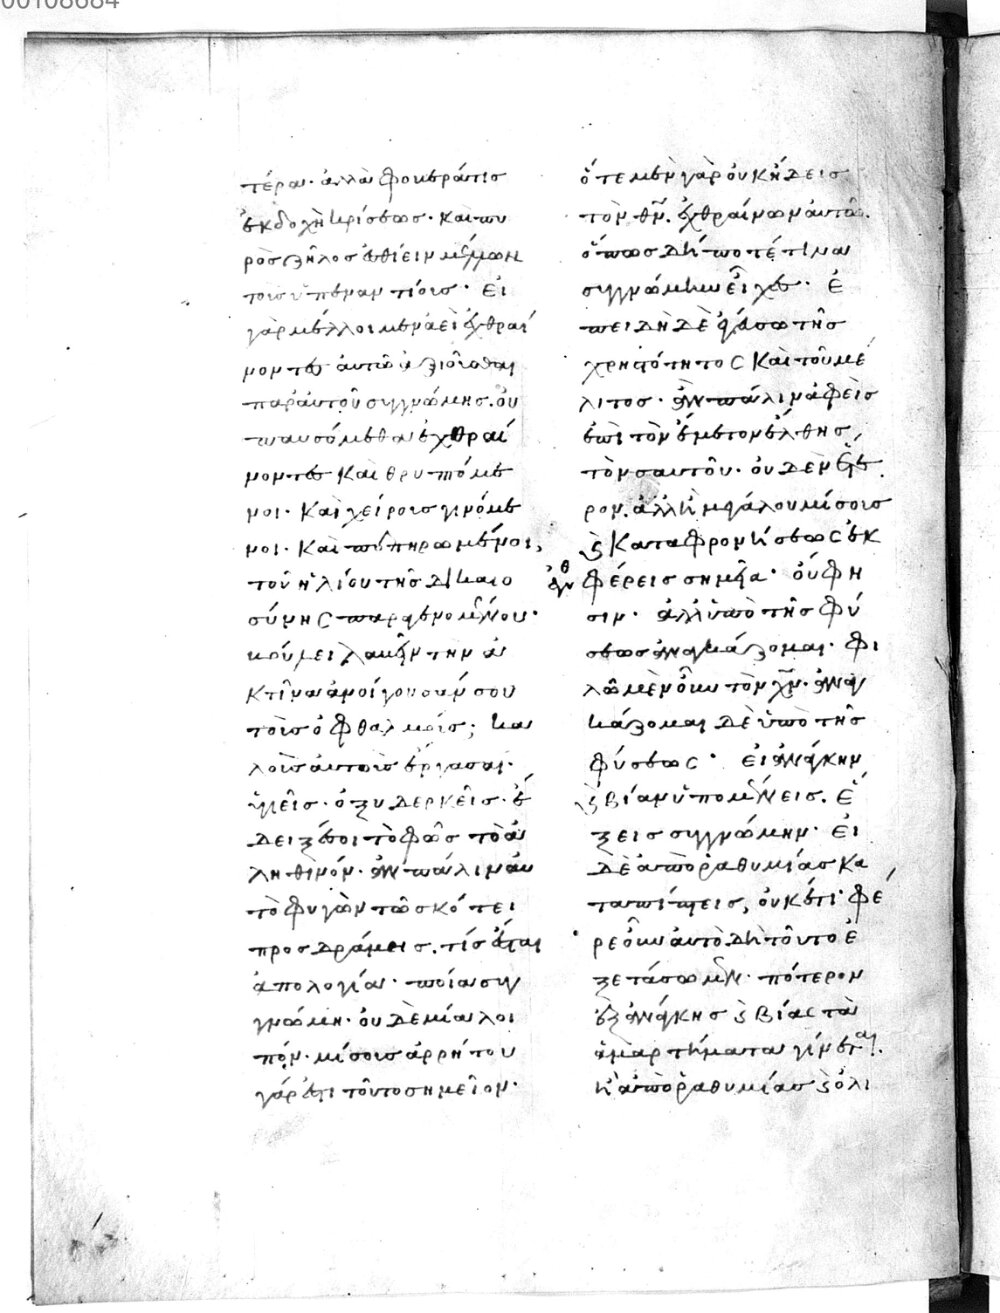 τέρα· ἀλλὰ φοβερά τισ
ἐκδοχὴ κρίσεως· καὶ πυ
ρὸς ζῆλος ἐσθίειν μέλλων
τοὺς ὑπεναντίους· Εἰ
γὰρ μέλλοιμεν ἀεὶ ἐχθραί
νοντες αὐτῶ ἀξιοῦσθαι
παρ' αὐτοῦ συγγνώμης· οὐ
παυσόμεθα ἐχθραί
νοντες καὶ θρυπτόμε
νοι· καὶ χείρους γινόμε
νοι· καὶ πεπηρωμένοι,
τοῦ ἡλίου τῆς δικαιο
σύνης παραγενομένου·
κτῖνα ἀνοίγουσάν σου
τοὺς ὀφθαλμούς; κα
λοὺς αὐτοὺς ἐργάσαι·
ὑγιεῖς· ὀξυδερκεῖς· ἔ
δειξέ σοι τὸ φῶς τὸ ἀ
ληθινόν· ἂν πάλιν αὐ
τὸ φυγὼν τῶ σκότει
προσδράμεις, τίς ἔσται
ἀπολογία· ποία συγ
γνώμη· οὐδεμία λοι
πόν· μίσους ἀρρήτου
γάρ ἐστι τοῦτο σημεῖον·
ὅτε μὲν γὰρ οὐκ ἤδεισ
τὸν θν̅· ἐχθραίνων αὐτῶ·
ὅπως δή ποτέ τινα
συγγνώμην εἶχες· ἐ
πειδὴ δὲ ἐγεύσω τῆς
χρηστότητος καὶ τοῦ μέ
λιτος· ἂν πάλιν ἀφεὶς
ἐπὶ τὸν ἔμετον ἔλθης
τὸν σαυτοῦ· οὐδὲν ἕτε
ρον, ἀλλ' ἢ μεγάλου μίσους
καὶ καταφρονήσεως ἐκ
φέρεις σημεῖα· οὔ φη
σιν· ἀλλ' ὑπὸ τῆς φύ
σεως ἀναγκάζομαι· φι
λῶ μὲν οὖν τὸν χν̅· ἀναγ
κάζομαι δὲ ὑπὸ τῆς
φύσεως· εἰ ἀνάγκην
καὶ βίαν ὑπομένεις, ἕ
ξεις συγγνώμην· εἰ
δὲ ἀπὸ ῥαθυμίας κα
ταπίπτεις, οὐκέτι· φέ
ρε οὖν αὐτὸ δὴ τοῦτο ἐ
ξετάσωμεν· πότερον
ἐξ ἀνάγκης καὶ βίας τὰ
ἁμαρτήματα γίνεται·
ἢ ἀπὸ ῥαθυμίας καὶ ὀλι